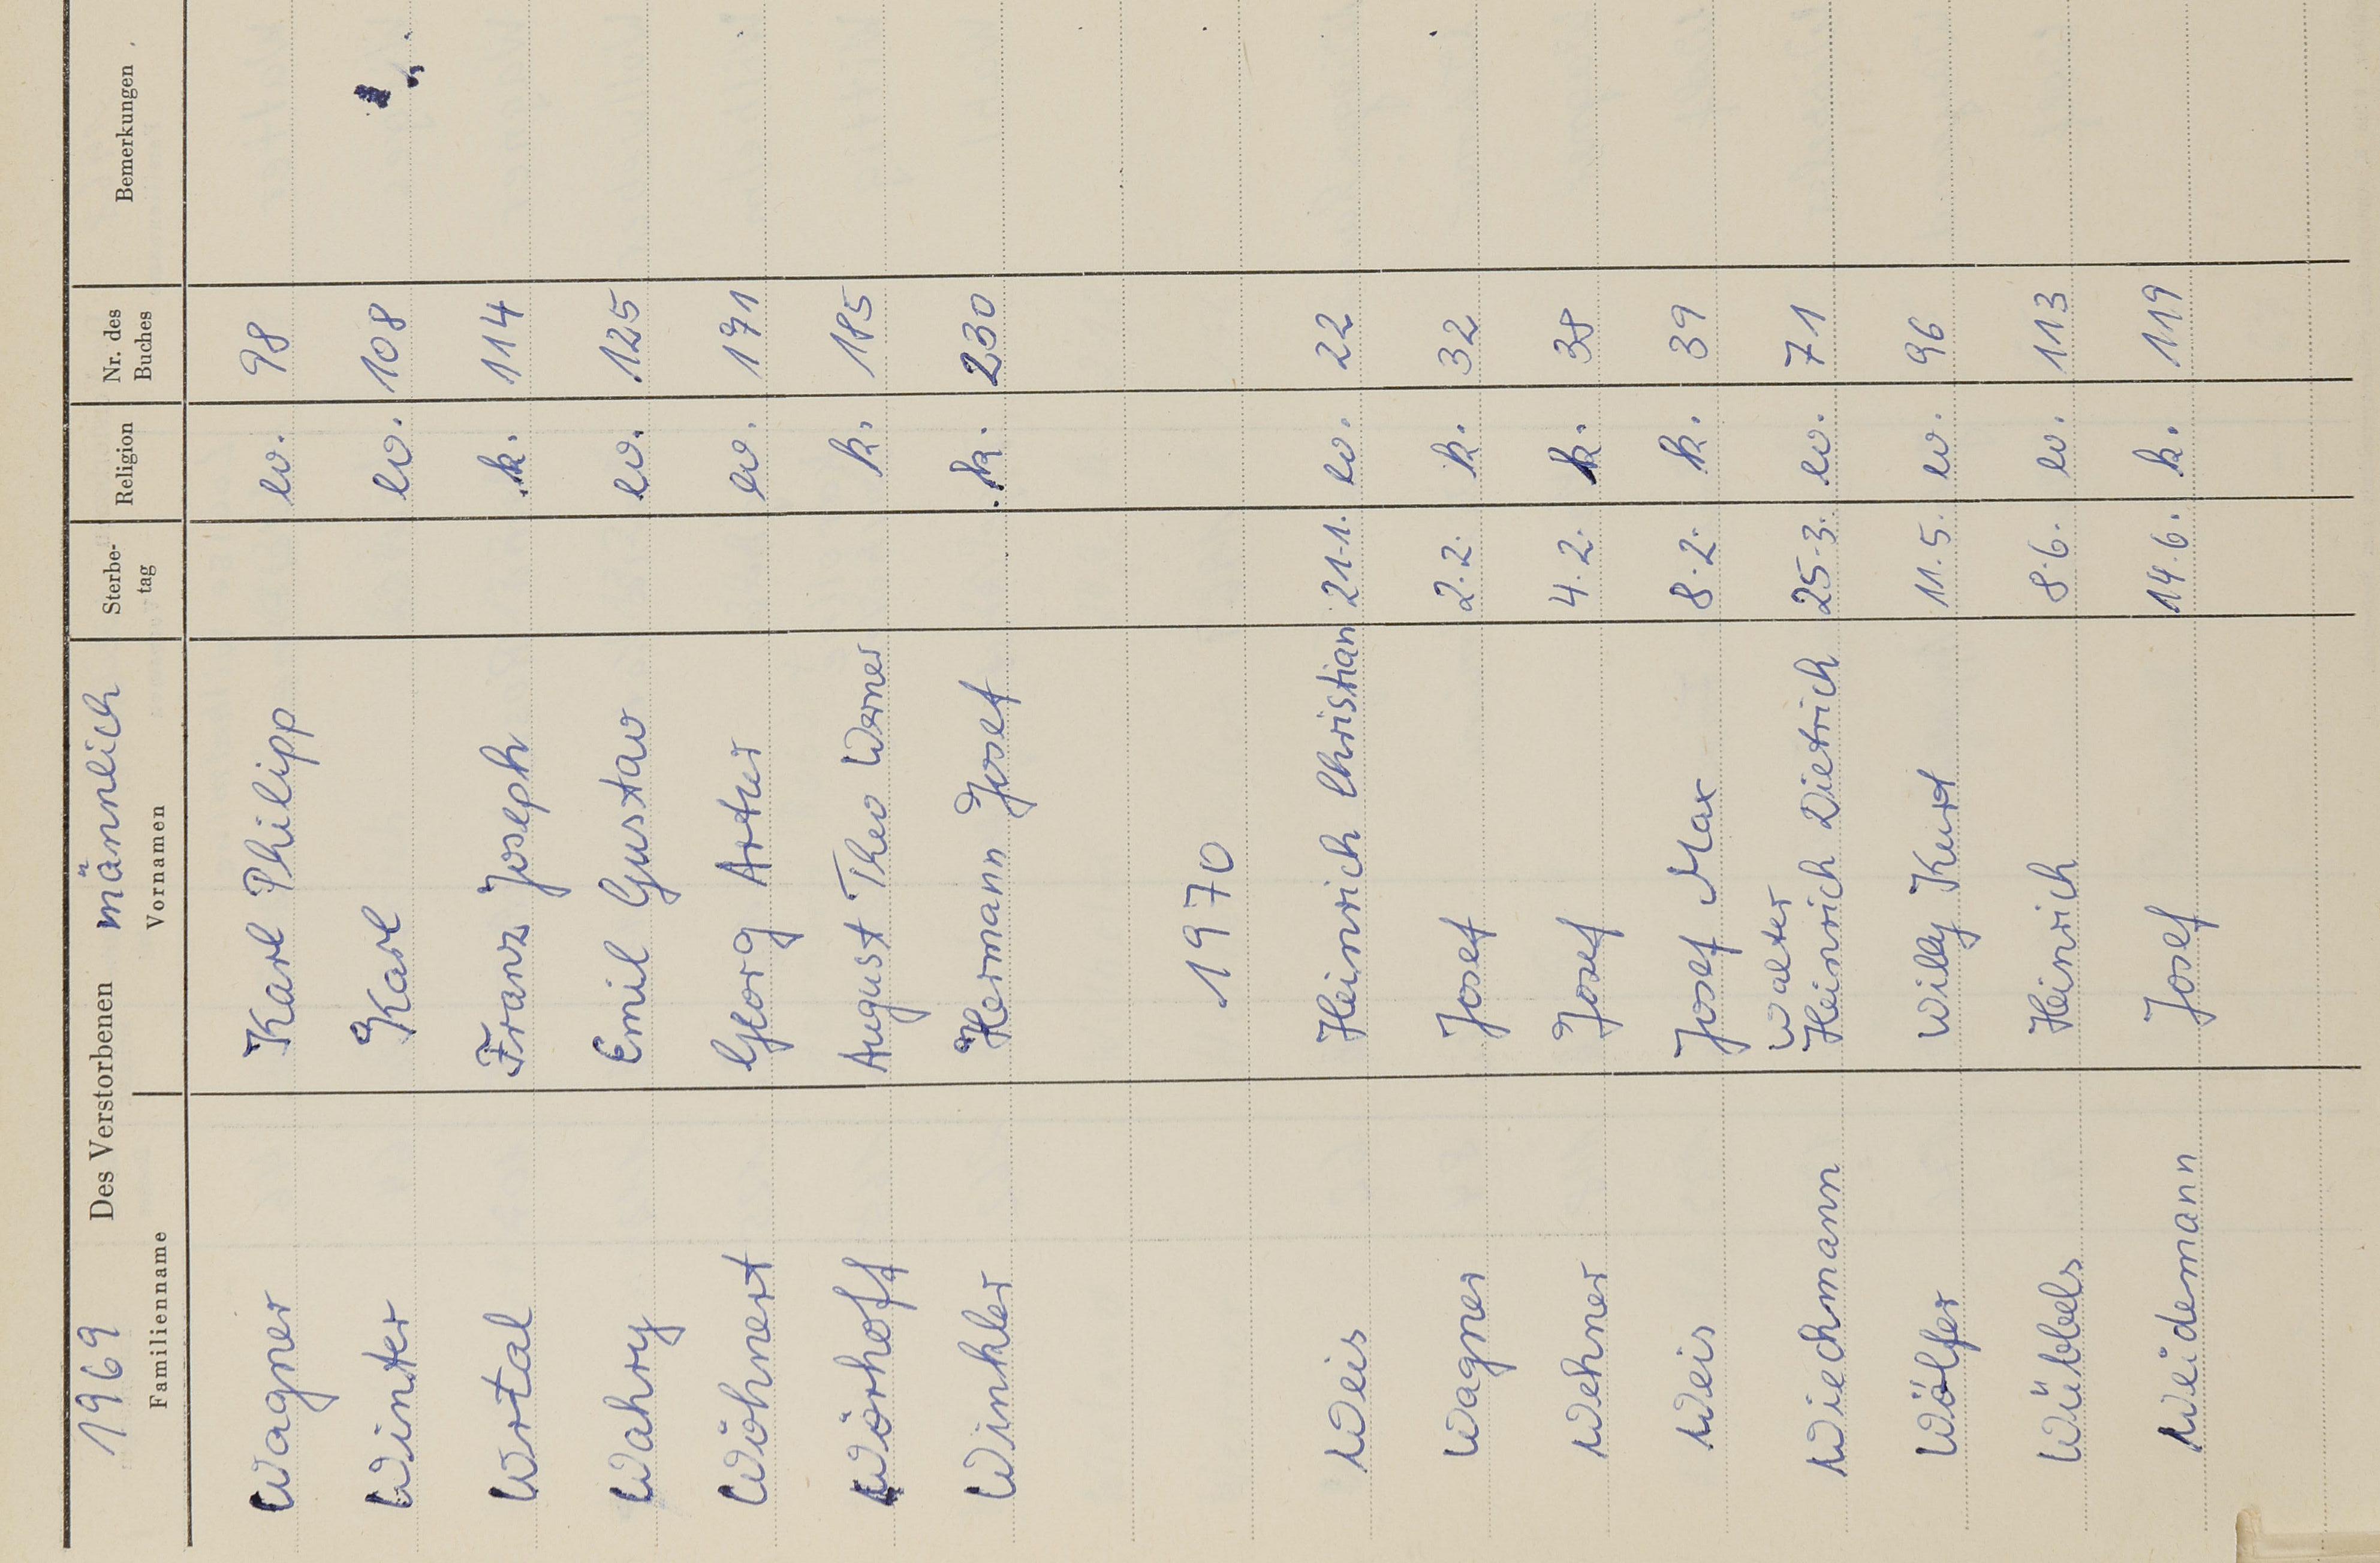 1969 Des Verstorbenen männlich
Familienname Vornamen Sterbe-tag Religion Nr. des Buches Bemerkungen
Wagner Karl Philipp ev. 98
Winter Karl ev. 108
Wrtal Franz Joseph k. 114
Wahry Emil Gustav ev. 125
Wöhnert Georg Artur ev. 171
Wörhoff August Theo Werner k. 185
Winkler Hermann Josef k. 230
1970
Weis Heinrich Christian 21.1. ev. 22
Wagner Josef 2.2. k. 32
Wehner Josef 4.2. k. 38
Weis Josef Max 8.2. k. 39
Walter
Wiechmann Heinrich Dietrich 25.3. ev. 71
Wölfer Willy Kurt 11.5. ev. 96
Wübbels Heinrich 8.6. ev. 113
Weidemann Josef 14.6. k. 119